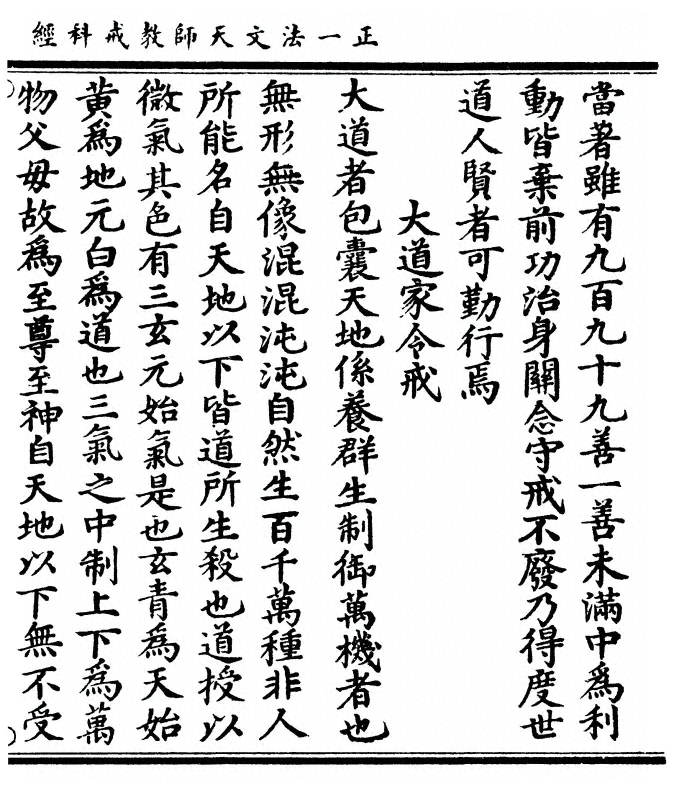 正一法文天師教戒科經
當著雖有九百九十九善一善未滿中爲利
動皆棄前功治身關念守戒不廢乃得度世
道人賢者可勤行焉
大道家令戒
大道者包囊天地係養群生制御萬機者也
無形無像混混沌沌自然生百千萬種非人
所能名自天地以下皆道所生殺也道授以
微氣其色有三玄元始氣是也玄青爲天始
黃爲地元白爲道也三氣之中制上下爲萬
物父母故爲至尊至神自天地以下無不受